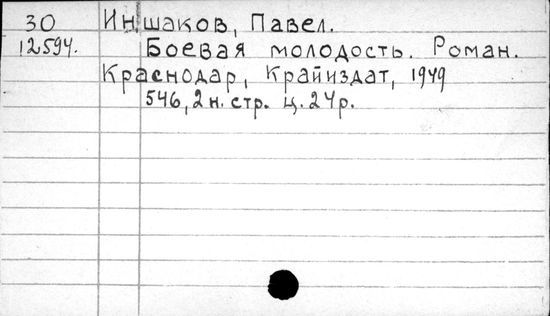 30 Иншаков, Павел.
12594. Боевая молодость. Роман.
Краснодар, Крайиздат, 1949
546, 2 н. стр. ц. 24р.